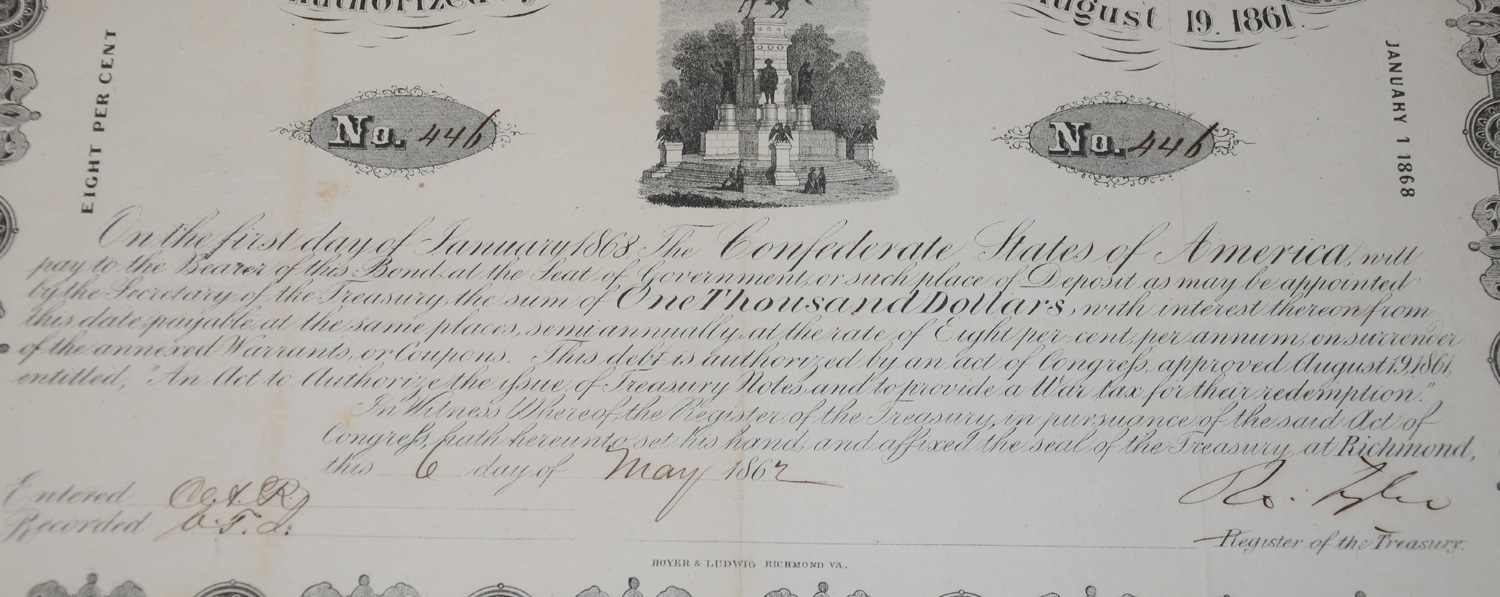 Authorized by
August 19. 1861.
EIGHT PER CENT
JANUARY 1 1868
No. 446
No. 446
On the first day of January 1868 The Confederate States of America, will
pay to the Bearer of this Bond, at the Seat of Government, or such place of Deposit as may be appointed
by the Secretary of the Treasury, the sum of One Thousand Dollars, with interest thereon from
this date, payable at the same places, semi annually, at the rate of Eight per cent, per annum, on surrender
of the annexed Warrants, or Coupons. This debt is authorized by an act of Congress, approved August 19, 1861,
entitled, "An Act to Authorize the issue of Treasury Notes, and to provide a War tax for their redemption."
In Witness Whereof, the Register of the Treasury, in pursuance of the said Act of
Congress, hath hereunto set his hand, and affixed the seal of the Treasury, at Richmond,
this 6 day of May 1862
Entered
Recorded
Ro. Tyler
Register of the Treasury.
HOYER & LUDWIG RICHMOND VA.